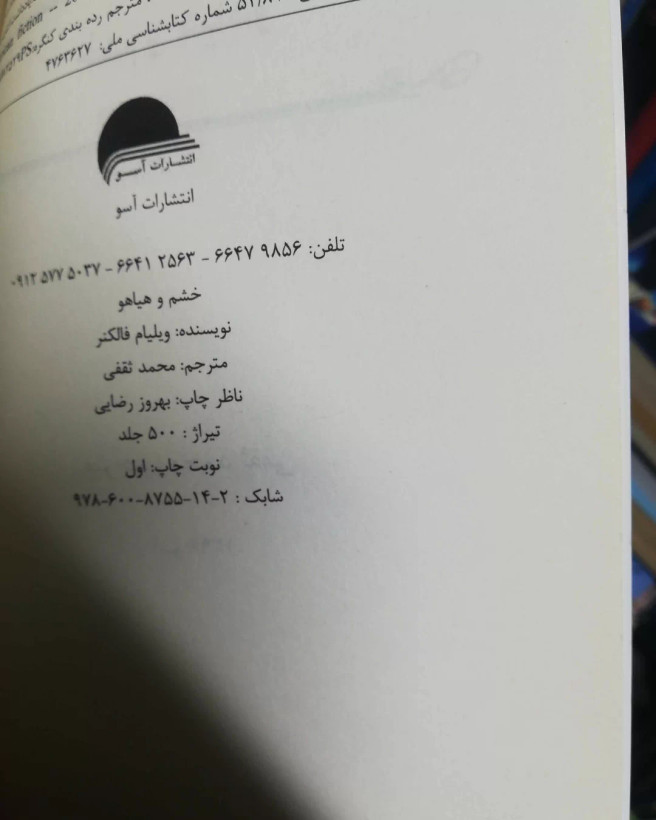 fiction -- 20
مترجم رده بندی کنگره
شماره کتابشناسی ملی: ۴۷۶۳۶۲۷
انتشارات آسو
انتشارات آسو
تلفن: ۹۸۵۶ ۶۶۴۷ - ۲۵۶۳ ۶۶۴۱ - ۵۰۳۷ ۵۷۷ ۰۹۱۲
خشم و هیاهو
نویسنده: ویلیام فالکنر
مترجم: محمد ثقفی
ناظر چاپ: بهروز رضایی
تیراژ : ۵۰۰ جلد
نوبت چاپ: اول
شابک : ۲-۱۴-۸۷۵۵-۶۰۰-۹۷۸